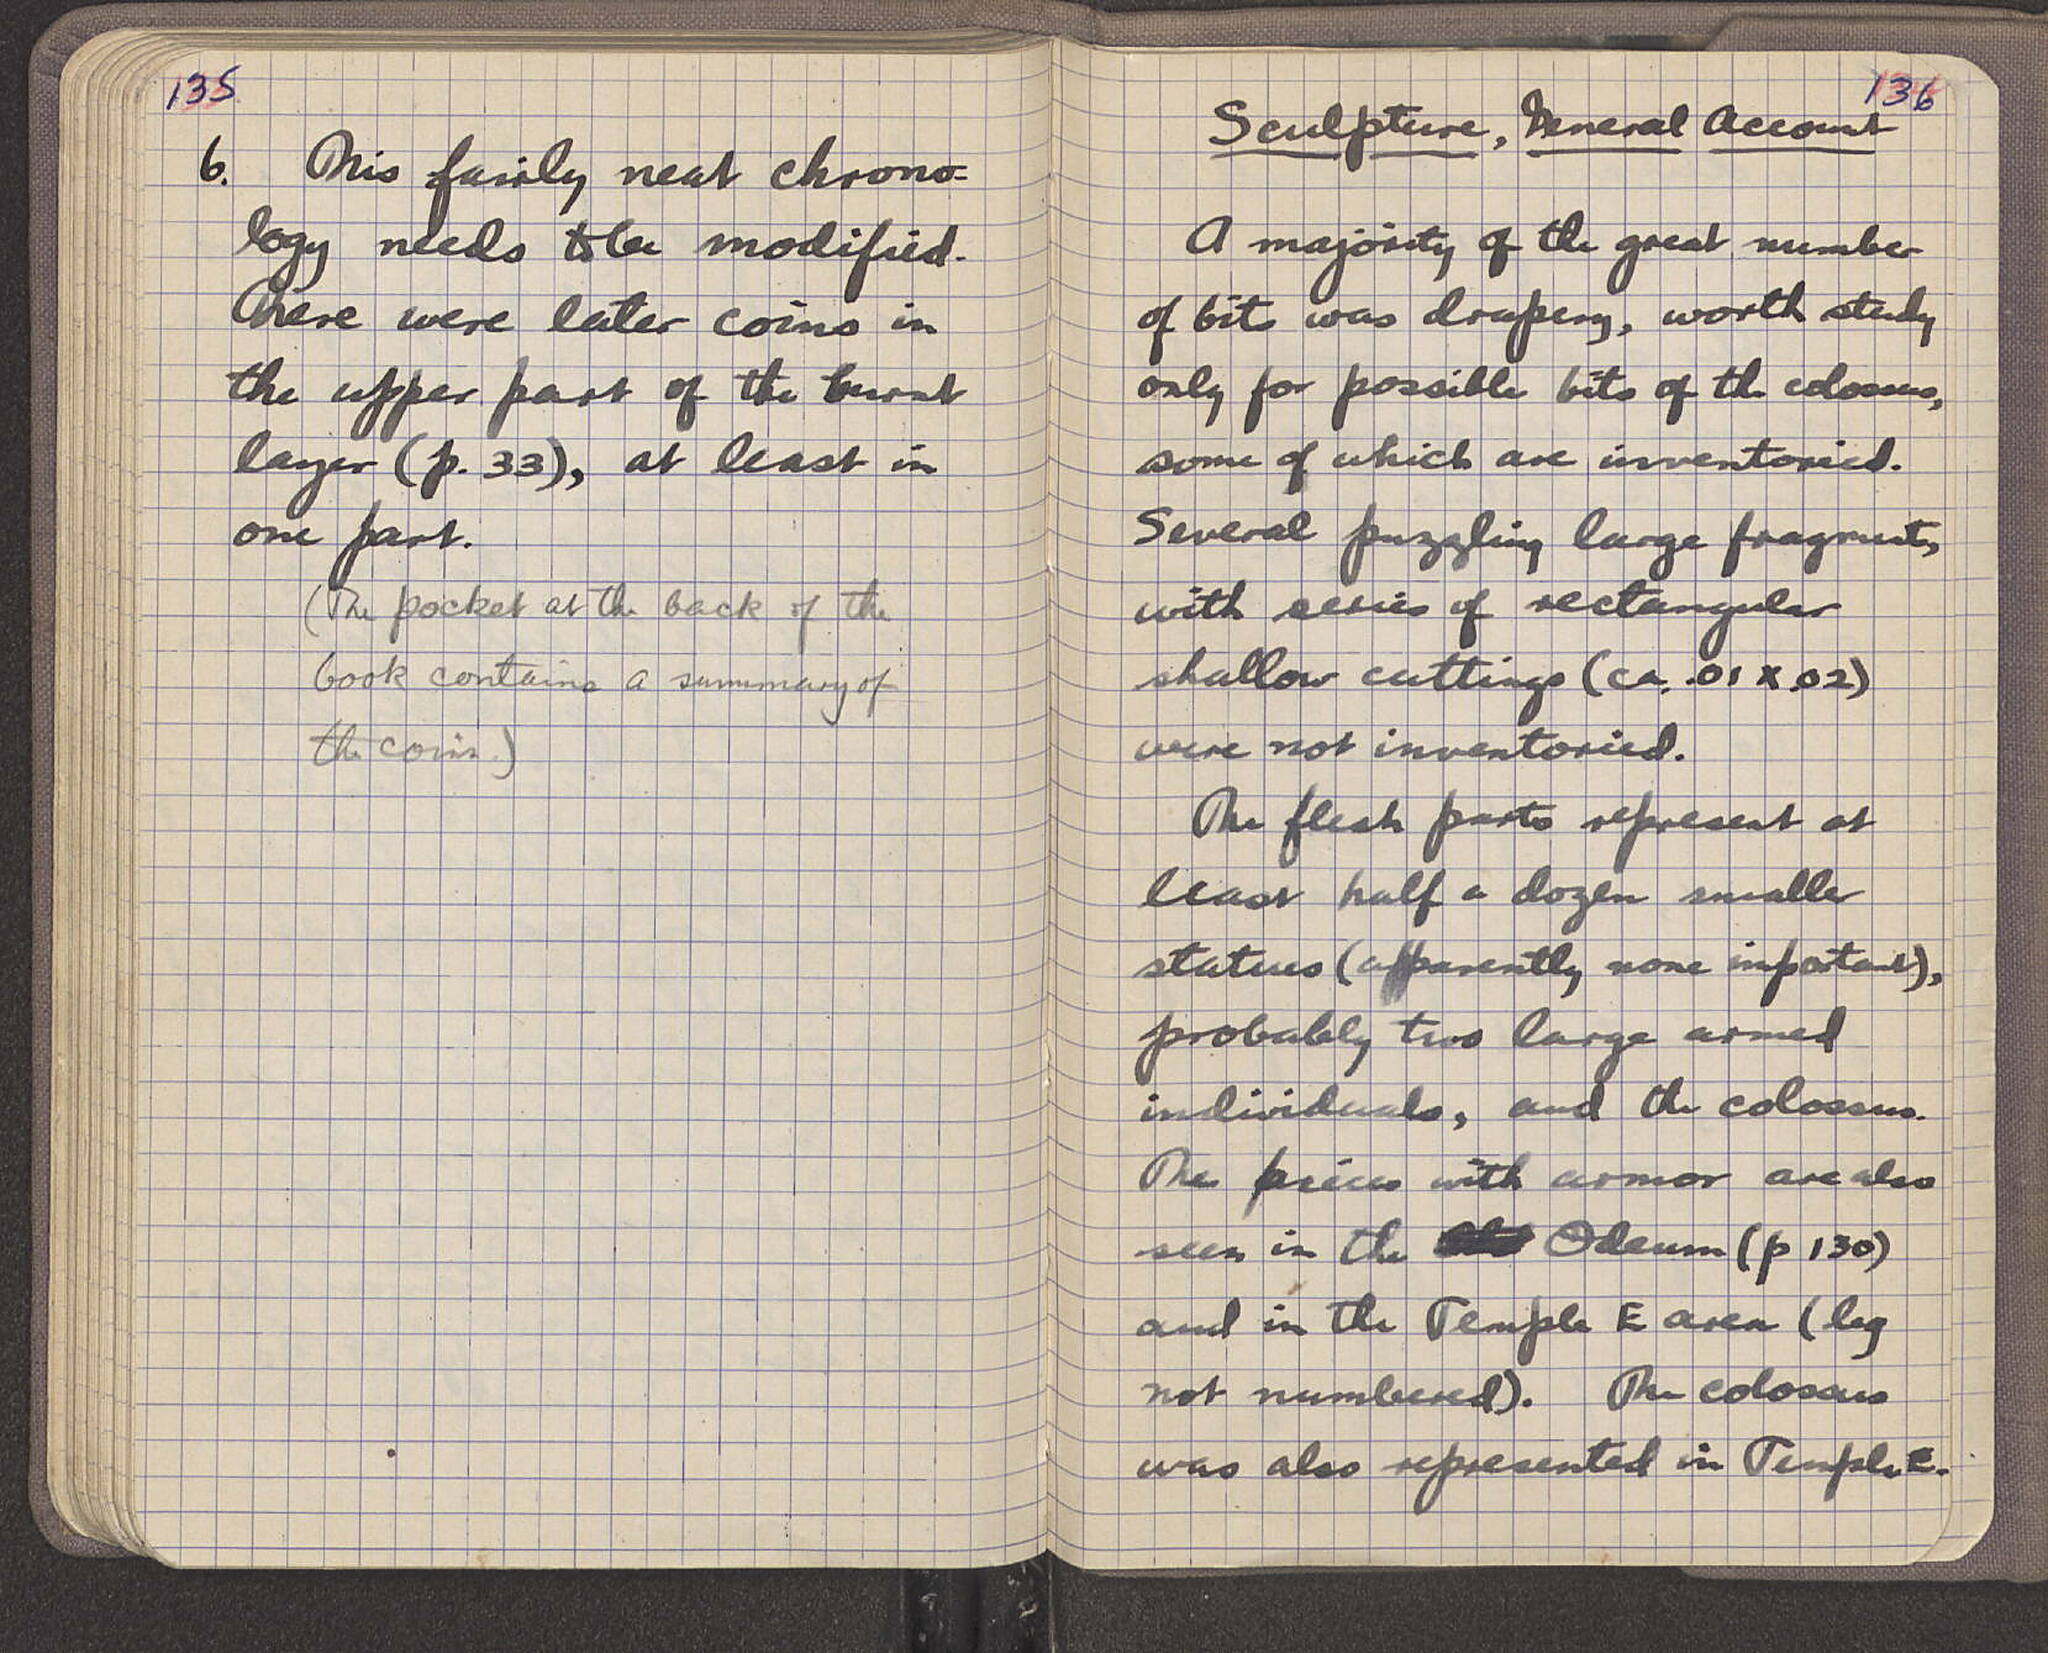 135
6. This fairly neat chrono-
logy needs to be modified.
There were later coins in
the upper part of the burnt
layer (p. 33), at least in
one part.
(The pocket at the back of the
book contains a summary of
the coins.)
136
Sculpture, General Account
A majority of the great number
of bits was drapery, worth study
only for possible bits of the colossus,
some of which are inventoried.
Several puzzling large fragments,
with series of rectangular
shallow cuttings (ca. .01 x .02)
were not inventoried.
The flesh parts represent at
least half a dozen smaller
statues (apparently none important),
probably two large armed
individuals, and the colossus.
The pieces with armor are also
seen in the Odeum (p 130)
and in the Temple E area (leg
not numbered). The colossus
was also represented in Temple E.